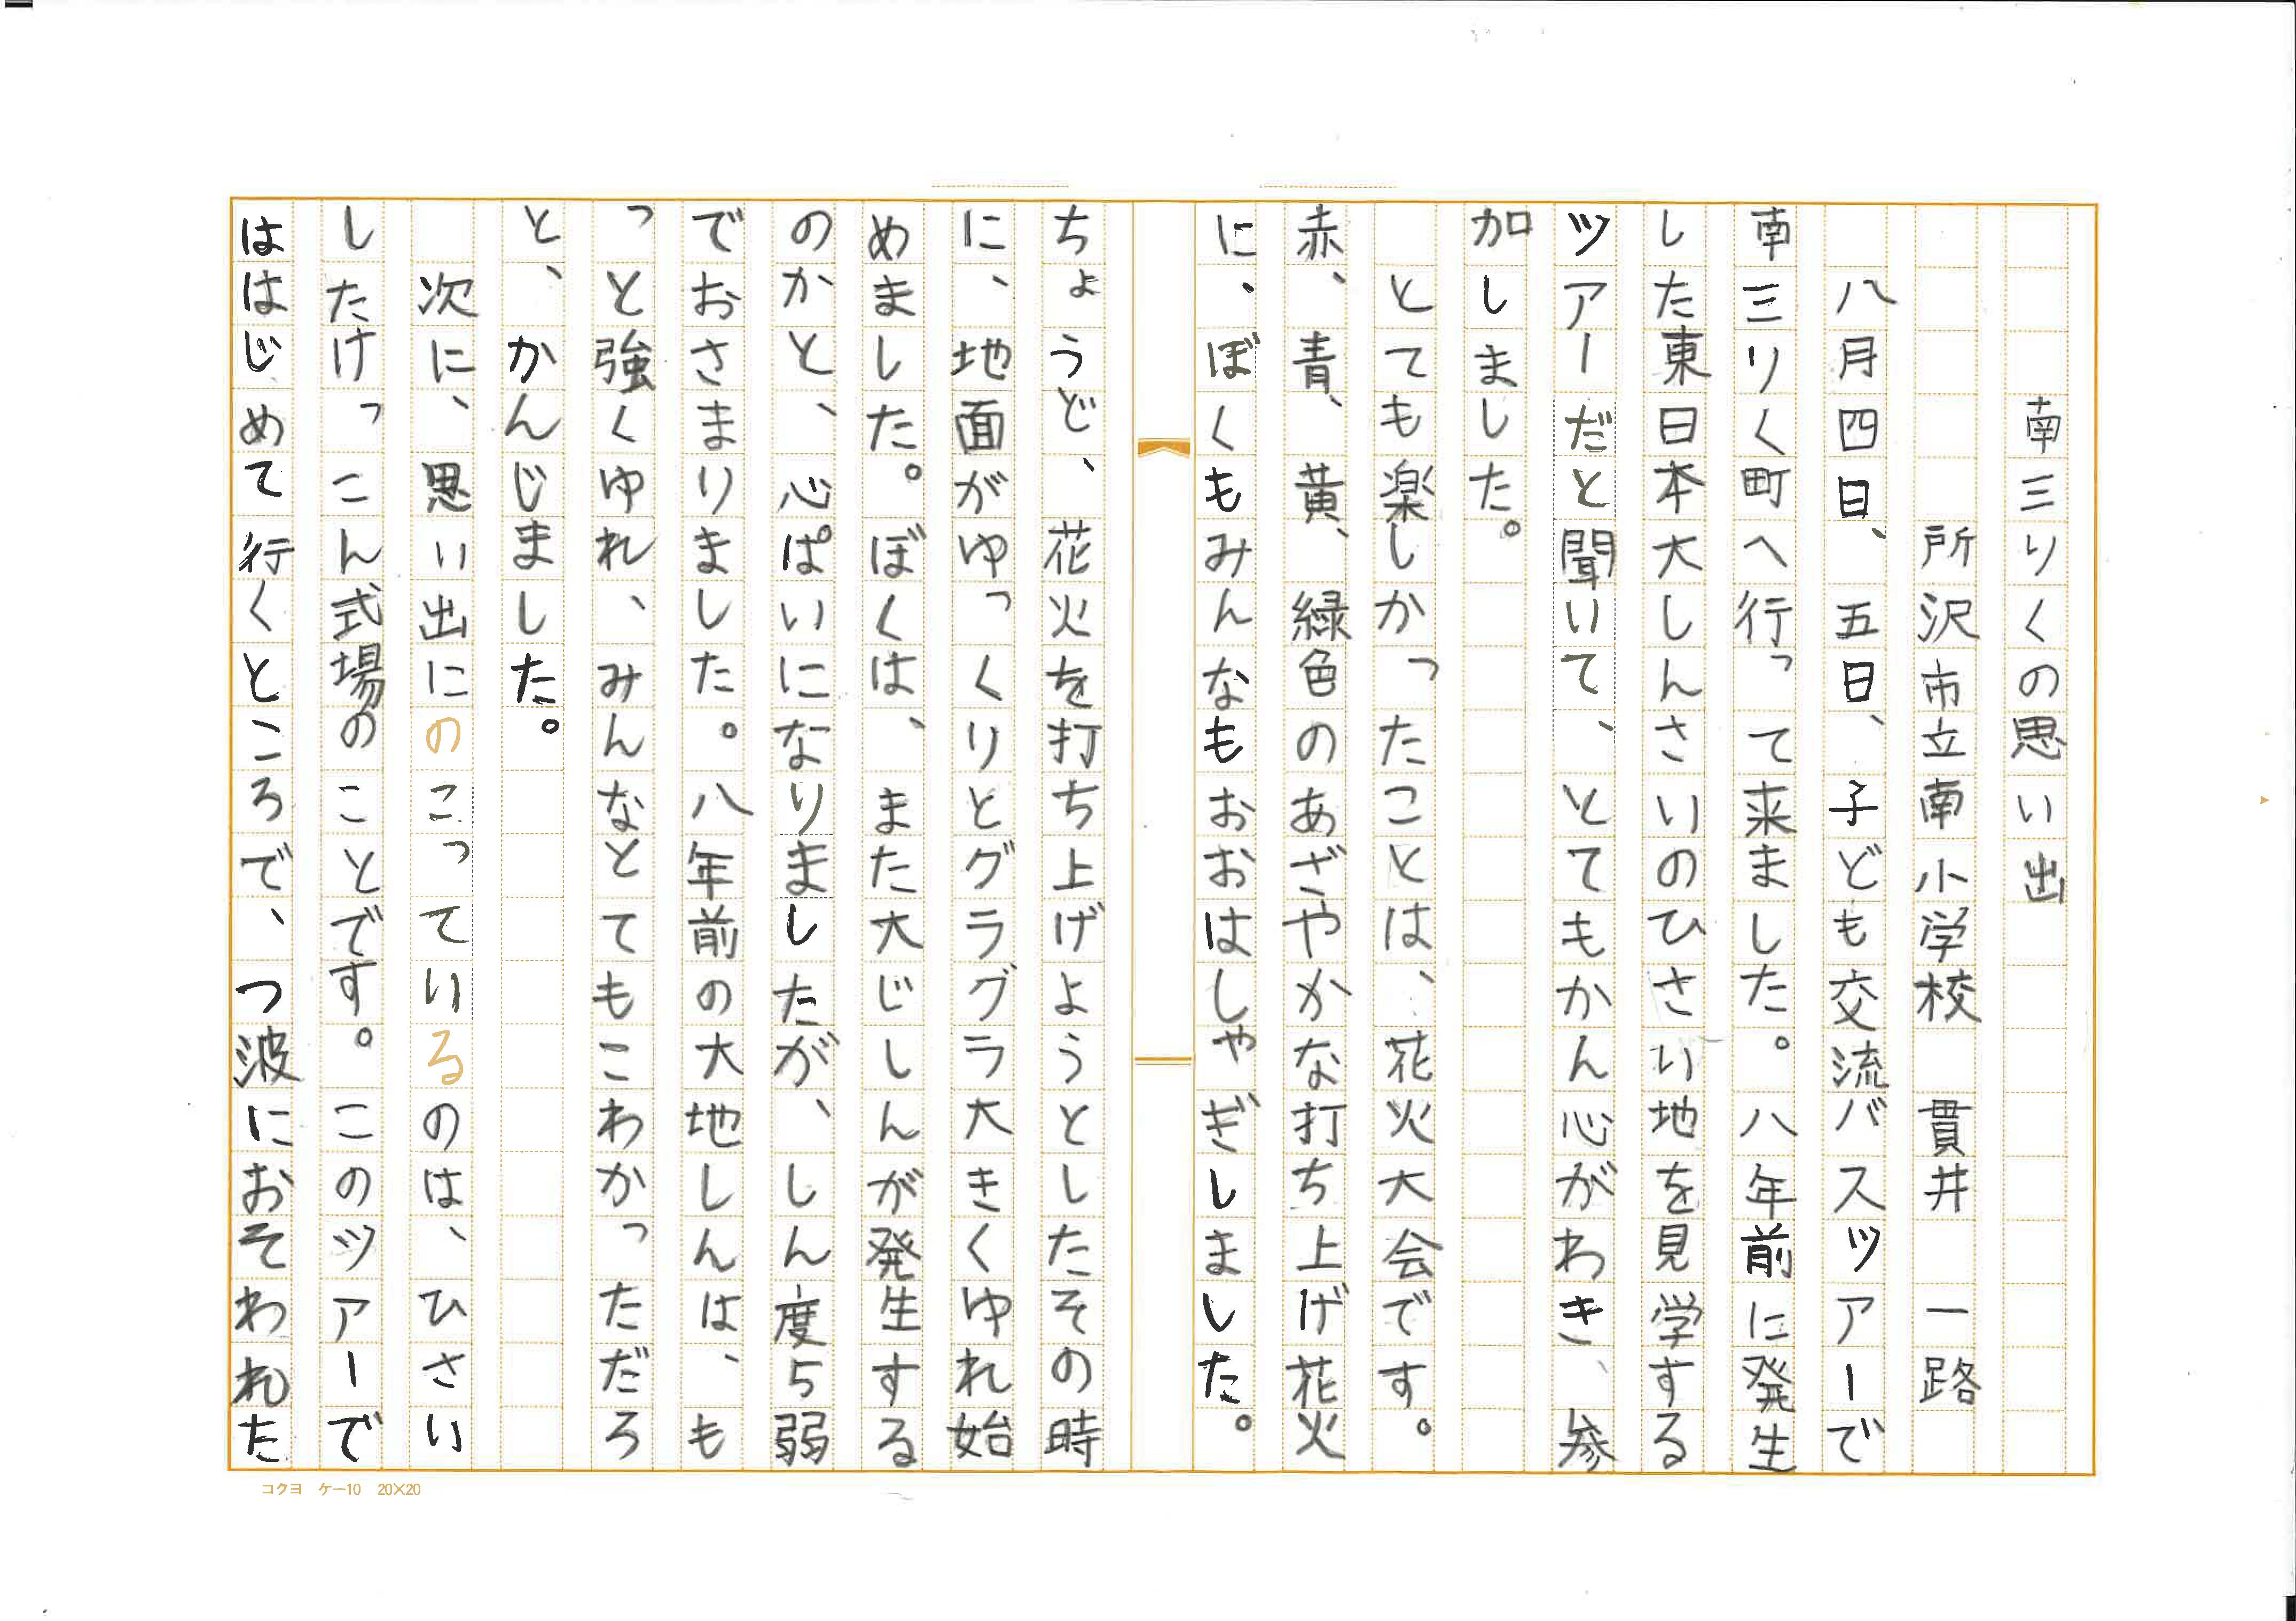 南三りくの思い出
所沢市立南小学校　貫井　一路
八月四日、五日、子ども交流バスツアーで
南三りく町へ行って来ました。八年前に発生
した東日本大しんさいのひさい地を見学する
ツアーだと聞いて、とてもかん心がわき、参
加しました。
とても楽しかったことは、花火大会です。
赤、青、黄、緑色のあざやかな打ち上げ花火
に、ぼくもみんなもおおはしゃぎしました。
ちょうど、花火を打ち上げようとしたその時
に、地面がゆっくりとグラグラ大きくゆれ始
めました。ぼくは、また大じしんが発生する
のかと、心ぱいになりましたが、しん度5弱
でおさまりました。八年前の大地しんは、も
っと強くゆれ、みんなとてもこわかっただろ
と、かんじました。
次に、思い出にのこっているのは、ひさい
したけっこん式場のことです。このツアーで
ははじめて行くところで、つ波におそわれた
コクヨ　ケー10　20×20